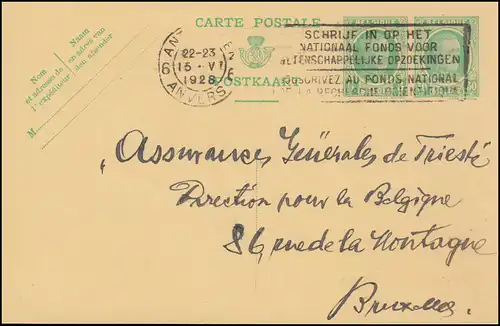 CARTE POSTALE
BELGIQUE
SCHRIJF IN OP HET
NATIONAAL FONDS VOOR
WETENSCHAPPELIJKE OPZOEKINGEN
SOUSCRIVEZ AU FONDS NATIONAL
DE LA RECHERCHE SCIENTIFIQUE
22-23
15 - VI
1928
6 6
ANVERS
POSTKAART
Nom
et adresse de
l'expéditeur
Naam
en adres van
den afzender
M
Assurances Générales de Trieste
Direction pour la Belgique
86 rue de la Montagne
Bruxelles.